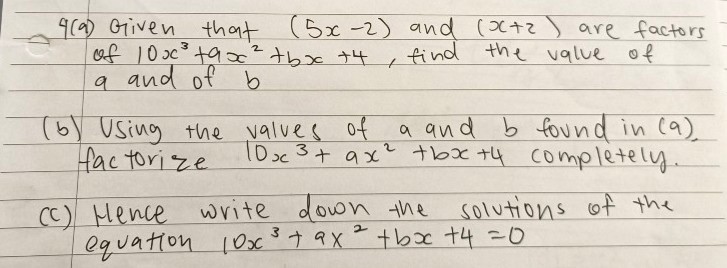 9(a) Given that (5x-2) and (x+2) are factors
of 10x³+ax²+bx+4, find the value of
a and of b
(b) Using the values of a and b found in (a),
factorize 10x³+ax²+bx+4 completely.
(c) Hence write down the solutions of the
equation 10x³+ax²+bx+4=0